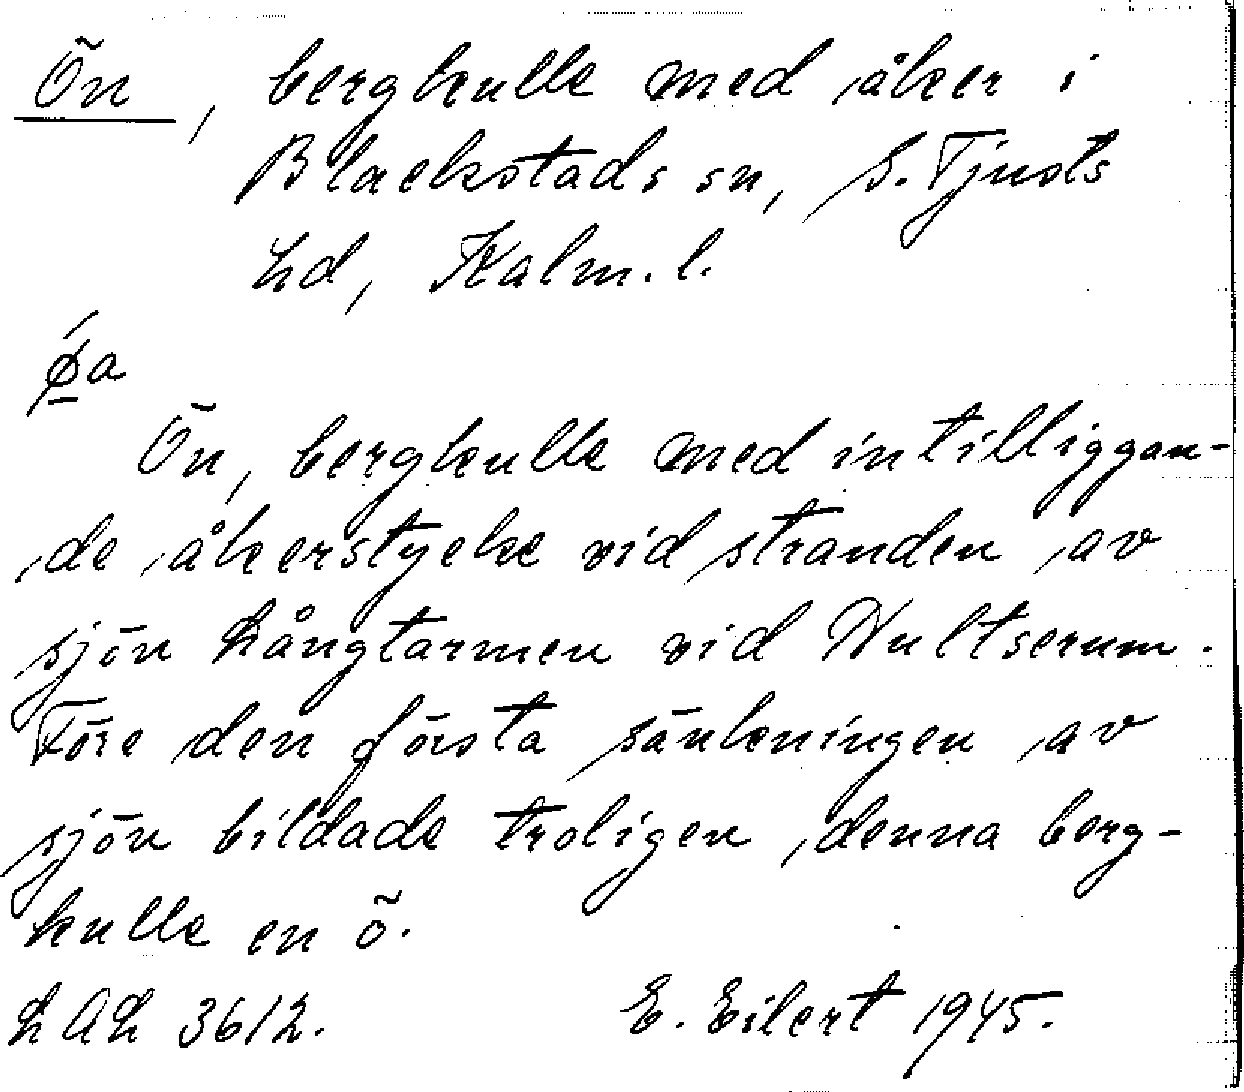 Ön, bergkulle med åker i
Blackstads sn, S. Tjusts
hd, Kalm. l.
ǿ̱a
Ön, bergkulle med intilliggan-
de åkerstycke vid stranden av
sjön Långtarmen vid Hultserum.
Före den första sänkningen av
sjön bildade troligen denna berg-
kulle en ö.
LAL 3612. E. Eilert 1945.